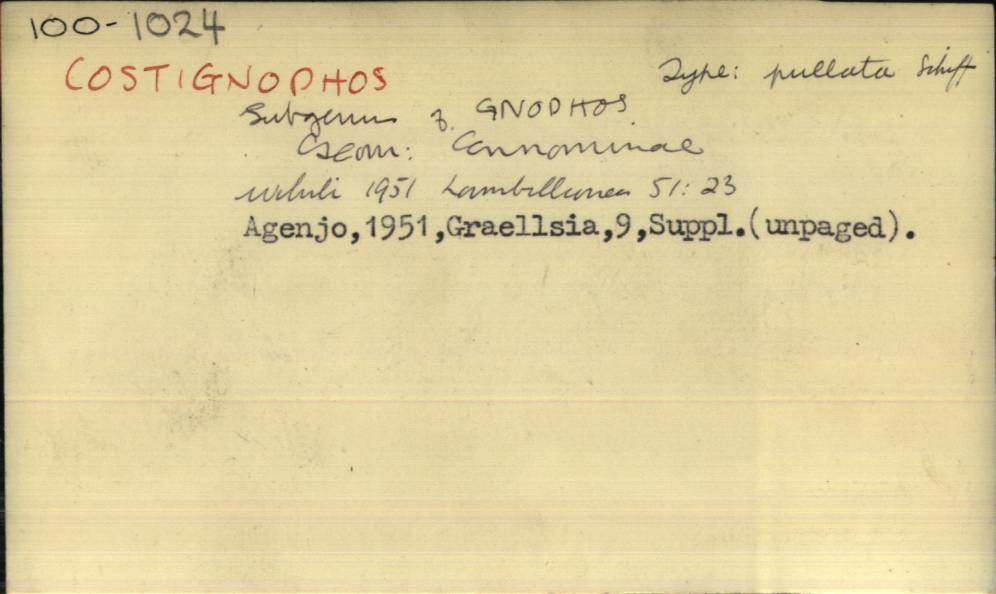 100-1024
COSTIGNOPHOS Type: pullata Schiff
Subgenus of GNOPHOS
Geom: Ennominae
Wehrli 1951 Lambillionea 51: 23
Agenjo,1951,Graellsia,9,Suppl.(unpaged).